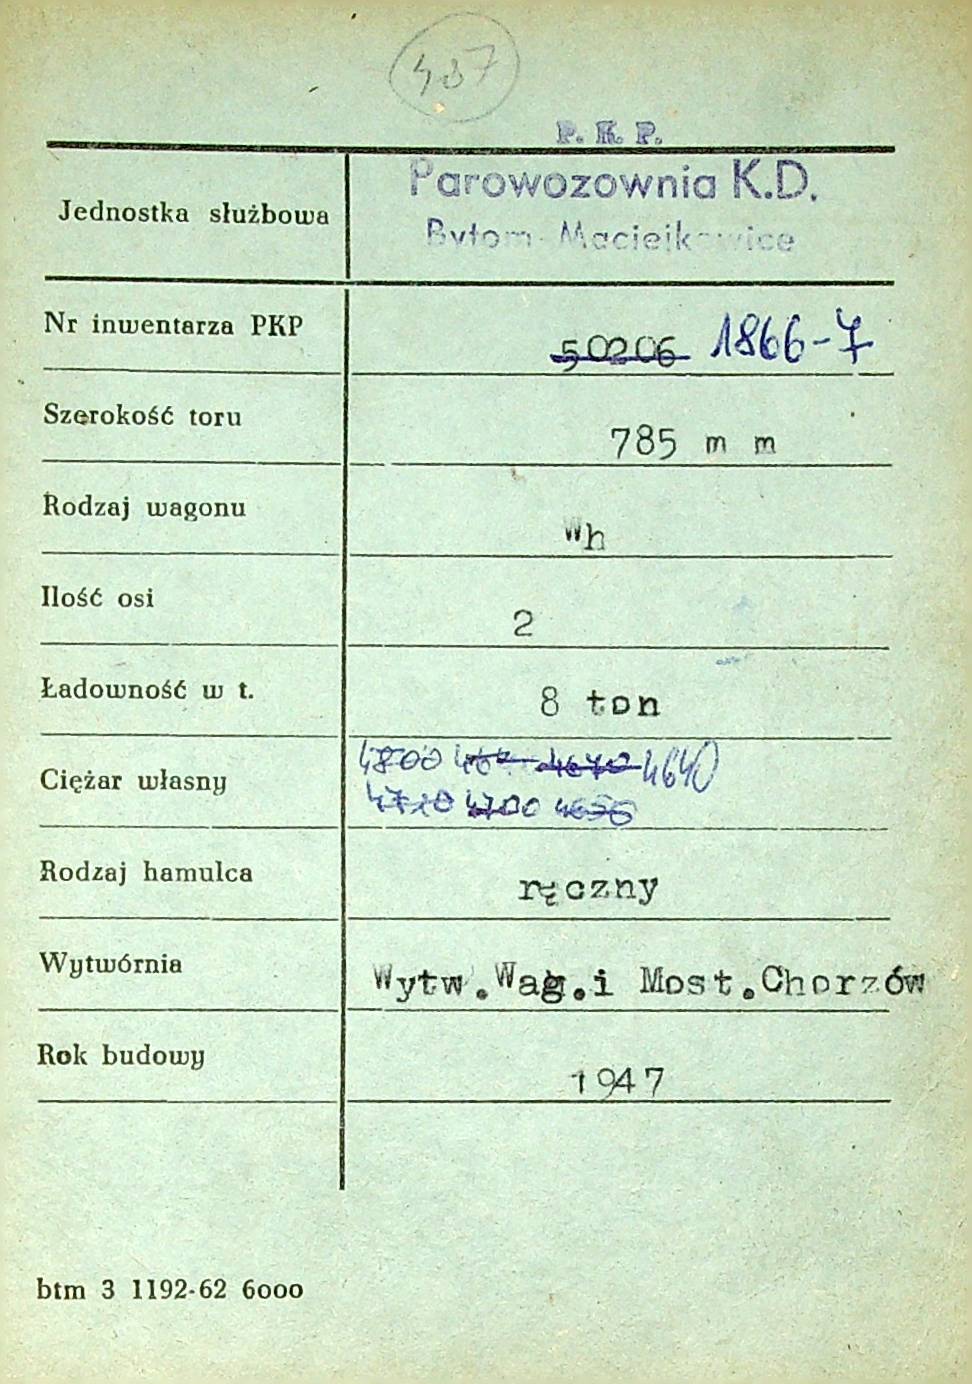 487
P. K. P.
Jednostka służbowa Parowozownia K.D.
Bytom-Maciejkowice
Nr inwentarza PKP 50206 1866-7
Szerokość toru 785 m m
Rodzaj wagonu Wh
Ilość osi 2
Ładowność w t. 8 ton
Ciężar własny 4800 4670 4640
4710 4700
Rodzaj hamulca ręczny
Wytwórnia Wytw.Wag.i Most.Chorzów
Rok budowy 1947
btm 3 1192-62 6000